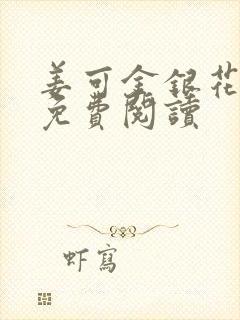 姜可金銀花
免費閱讀
虾寫